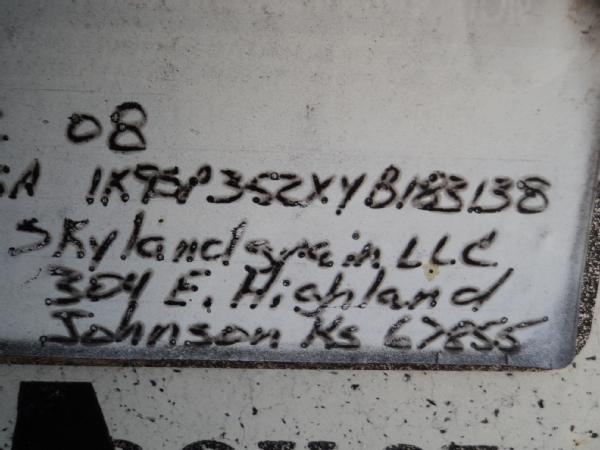 08
1K9SP352XYB183138
Skyland grain, LLC
304 E. Highland
Johnson Ks 67855